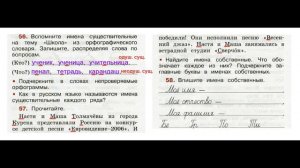 56. Вспомните имена существительные
на тему «Школа» из орфографического
словаря. Запишите, распределяя слова по
вопросам.
одуш. сущ.
(Кто?) ученик, ученица, учительница.
(Что?) пенал, тетрадь, карандаш. неодуш. сущ.
• Подчеркните в словах непроверяемые
орфограммы.
• Как в русском языке называются имена
существительные каждого ряда?
57. Прочитайте.
Настя и Маша Толмачёвы из города
Курска представляли Россию на конкур-
се детской песни «Евровидение-2006». И
победили! Они исполнили песню «Весен-
ний джаз». Настя и Маша занимались в
эстрадной студии «Сверчок».
• Найдите имена собственные. Что обо-
значает каждое из них? Подчеркните за-
главные буквы в именах собственных.
58. Впишите имена собственные.
Моё имя —
Моё отчество —
Моя фамилия —